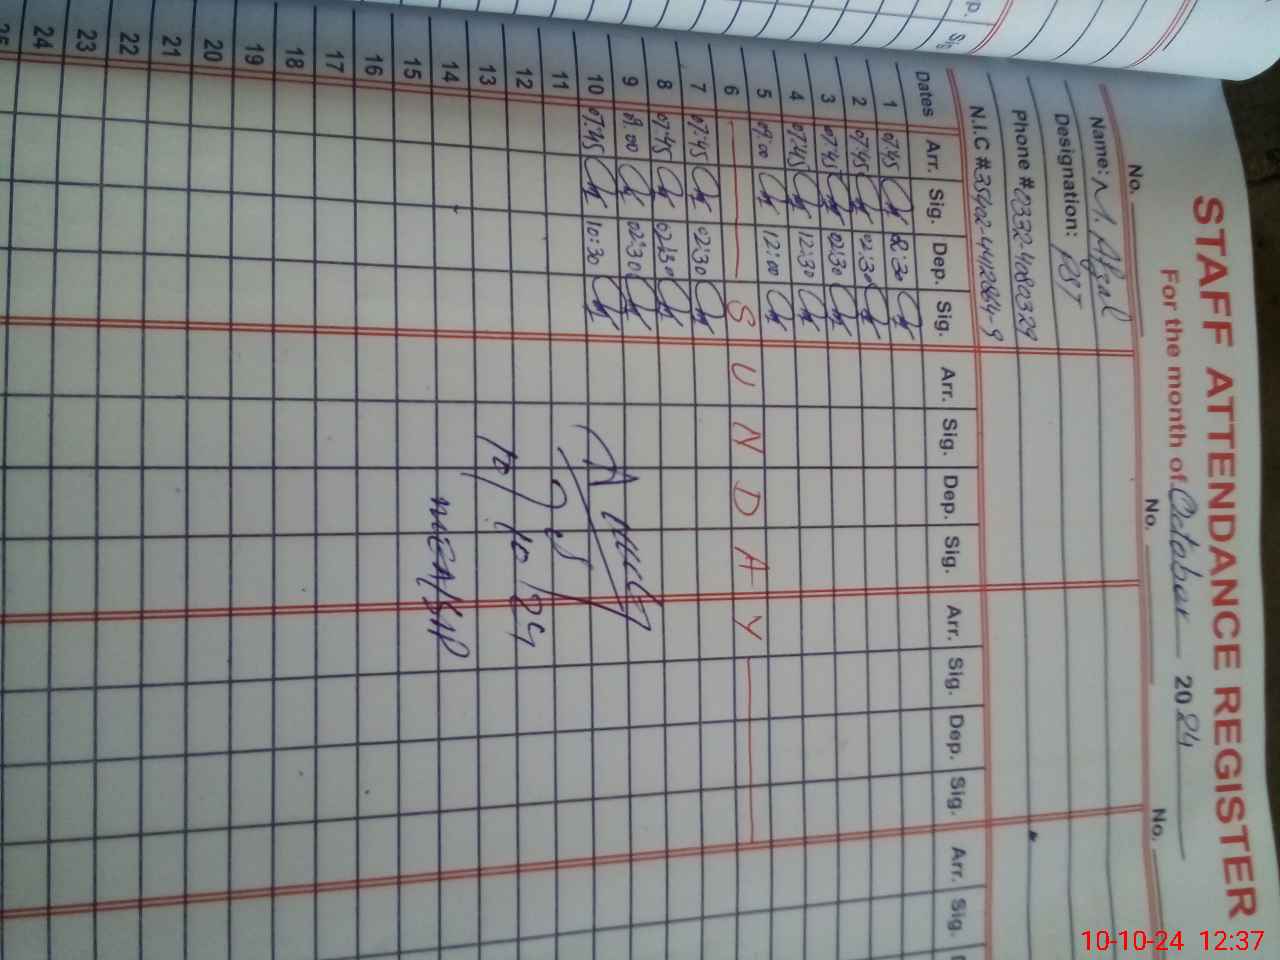 STAFF ATTENDANCE REGISTER
For the month of October 2024
No. No. No.
Name: M. Afzal
Designation: PST
Phone # 0332-4080329
N.I.C #
Dates Arr. Sig. Dep. Sig. Arr. Sig. Dep. Sig. Arr. Sig. Dep. Sig. Arr. Sig.
1 07:45 8:30
2 07:45 02:30
3 07:45 02:30
4 07:45 12:30
5 09:00 12:00
6 SUNDAY
7 07:45 02:30
8 07:45 02:30
9 8:00 02:30
10 07:45 10:30
11
12
13
14
15
16
17
18
19
20
21
22
23
24
25
10/10/24
p. Sig
10-10-24 12:37